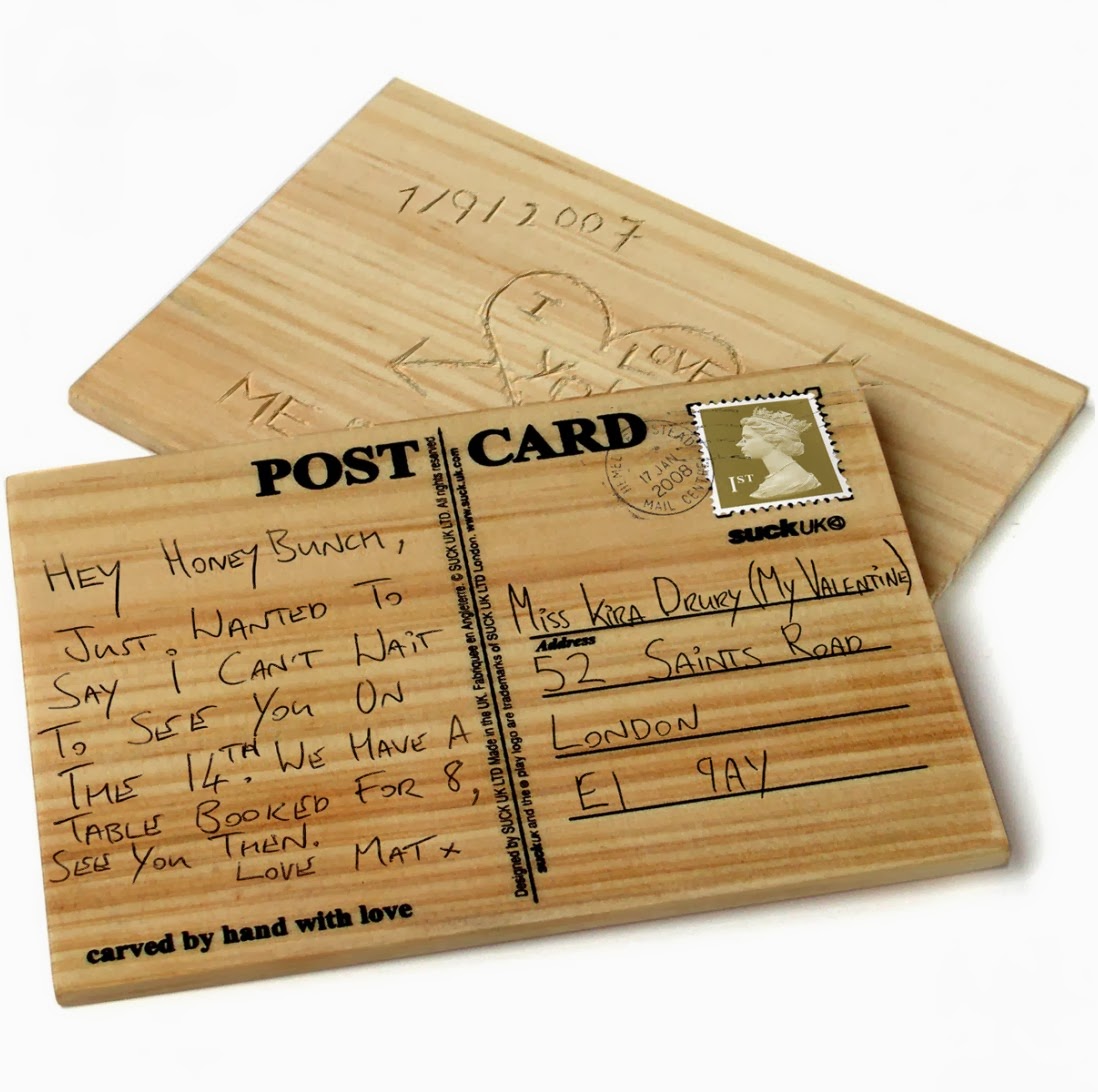 1/9/2007
I
LOVE
YOU
ME
POST CARD
HEMEL
STEAD
17 JAN
2008
MAIL CENTRE
1ST
suckUK
HEY HONEY BUNCH,
JUST WANTED TO
SAY I CAN'T WAIT
TO SEE YOU ON
THE 14TH. WE HAVE A
TABLE BOOKED FOR 8,
SEE YOU THEN.
LOVE MAT x
carved by hand with love
Designed by SUCK UK LTD Made in the UK. Fabriquee en Angleterre. © SUCK UK LTD. All rights reserved
suckUK and the play logo are trademarks of SUCK UK LTD London. www.suck.uk.com
MISS KIRA DRURY (MY VALENTINE)
Address
52 SAINTS ROAD
LONDON
E1 9AY